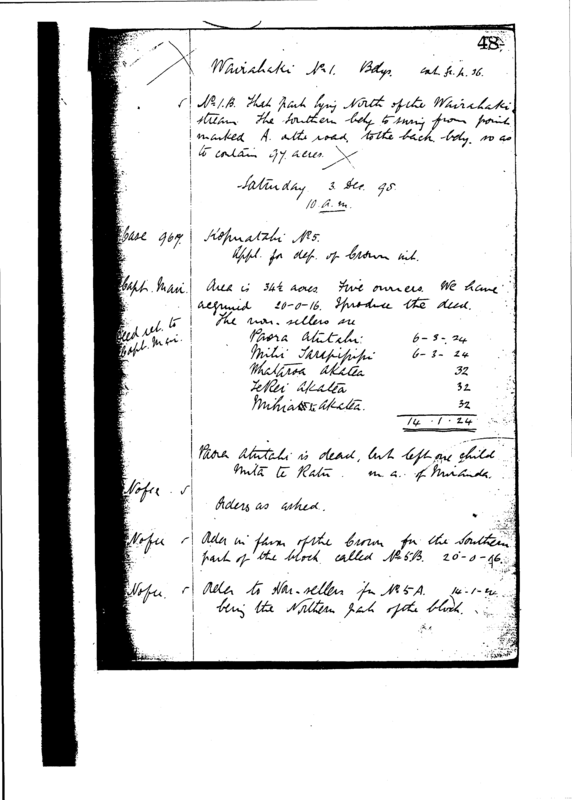 48.
Wairahaki No 1. Bdys.
No 1.B. That part lying North of the Wairahaki
stream the southern bdy to swing from point
marked A. on the road, to the back bdy. so as
to contain 97 acres
Saturday 3 Dec. 98.
10 a.m.
Case 967. Kopuatahi No 5.
Appl. for def. of Crown int.
Capt. Mair. Area is 34½ acres Five owners. We have
acquired 20-0-16. I produce the deed.
Deed ret. to Capt. Mair.
The non-sellers are
Paora Atutahi 6-3-24
Mihi Tarapipipi 6-3-24
Whataroa Akatea 32
Te Rei Akatea 32
Mihiata Akatea. 32
14.1.24
Paora Atutahi is dead, but left one child
Mita te Ratu m. a. of Miranda.
No fee 5
Orders as asked.
No fee 5 Order in favor of the Crown for the Southern
part of the block called No 5B. 20-0-16.
No fee. 5 Order to Non-sellers for No 5A. 14-1-24
being the Northern part of the block.